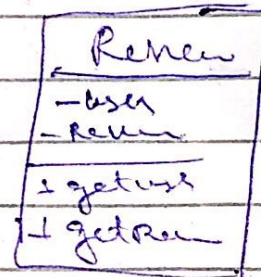 Review
- user
- Review
+ getuser
+ getRev